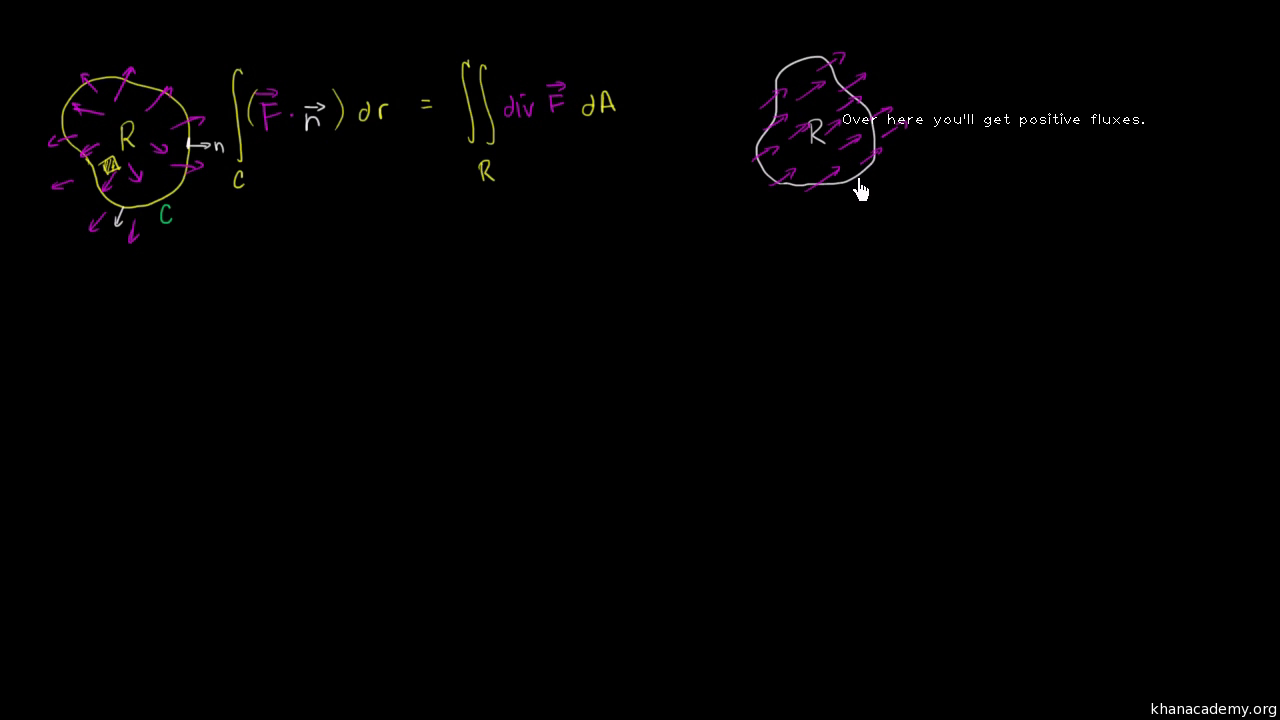 R
n
C
∫_C (F⃗ · n⃗) dr = ∬_R div F⃗ dA
R
Over here you'll get positive fluxes.
khanacademy.org